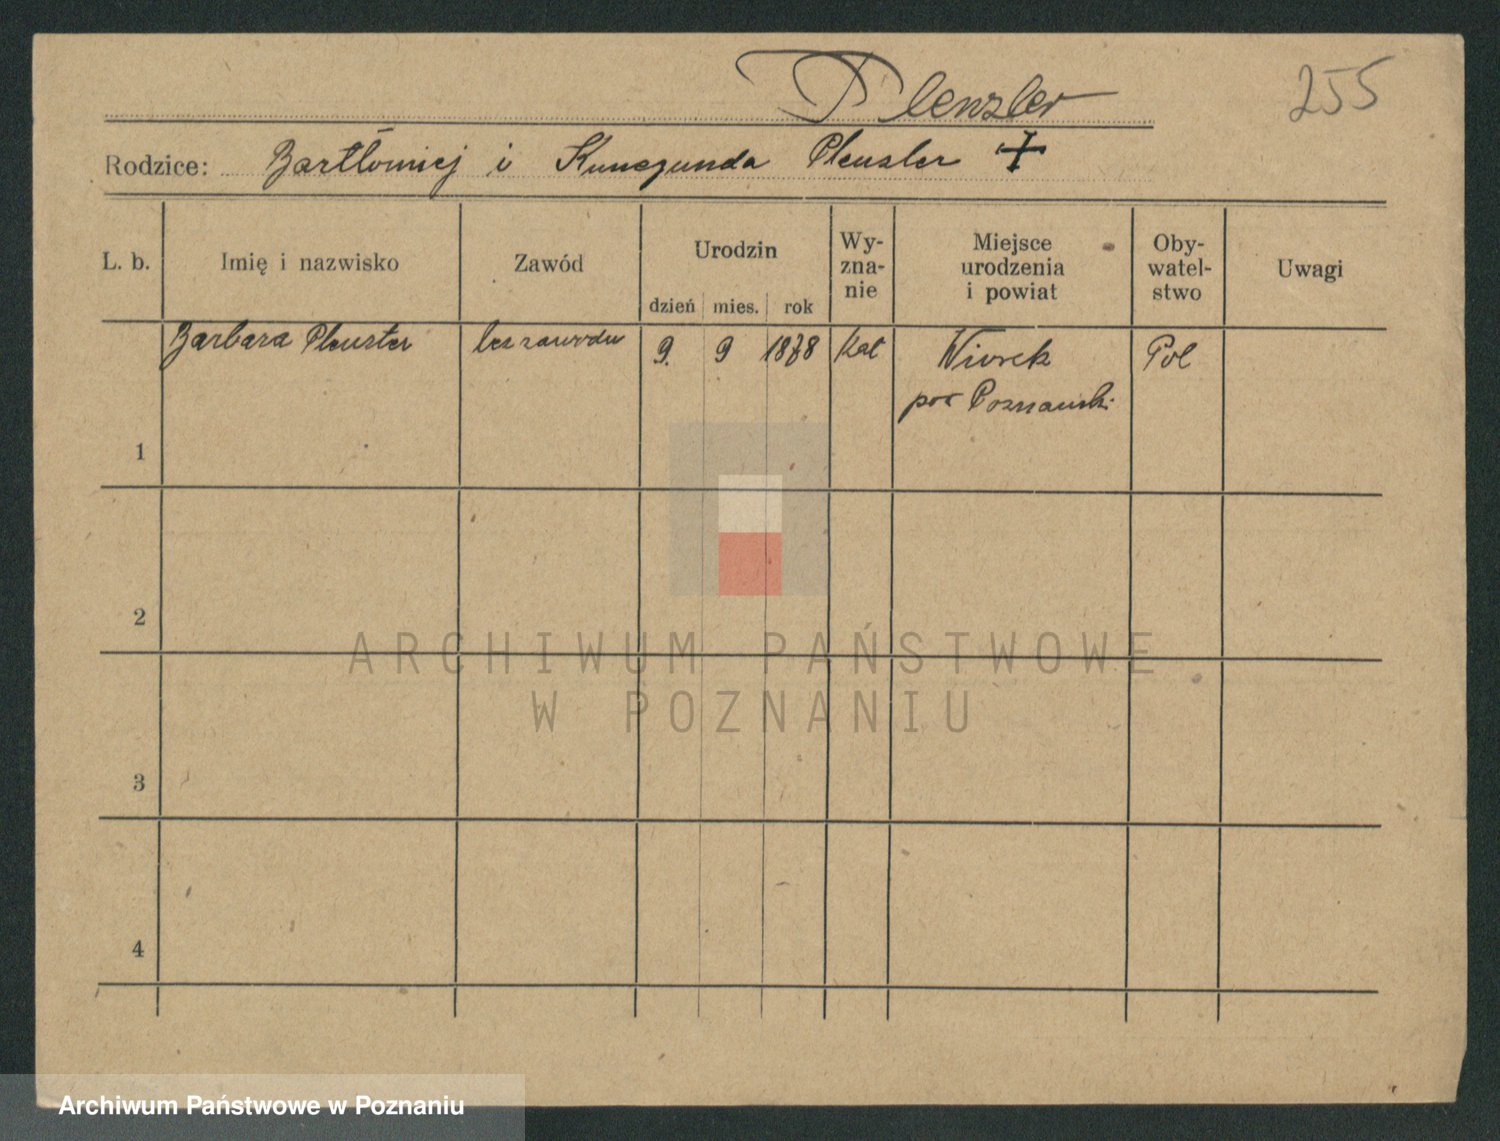 Plenzler
255
Rodzice: Bartłomiej i Kunegunda Plenzler +
L. b.
Imię i nazwisko
Zawód
Urodzin
dzień mies. rok
Wy-
zna-
nie
Miejsce
urodzenia
i powiat
Oby-
watel-
stwo
Uwagi
1
Barbara Plenzler
bez zawodu
9. 9 1878
Kat
Wiorek
pow Poznański
Pol
2
3
4
ARCHIWUM PAŃSTWOWE
W POZNANIU
Archiwum Państwowe w Poznaniu